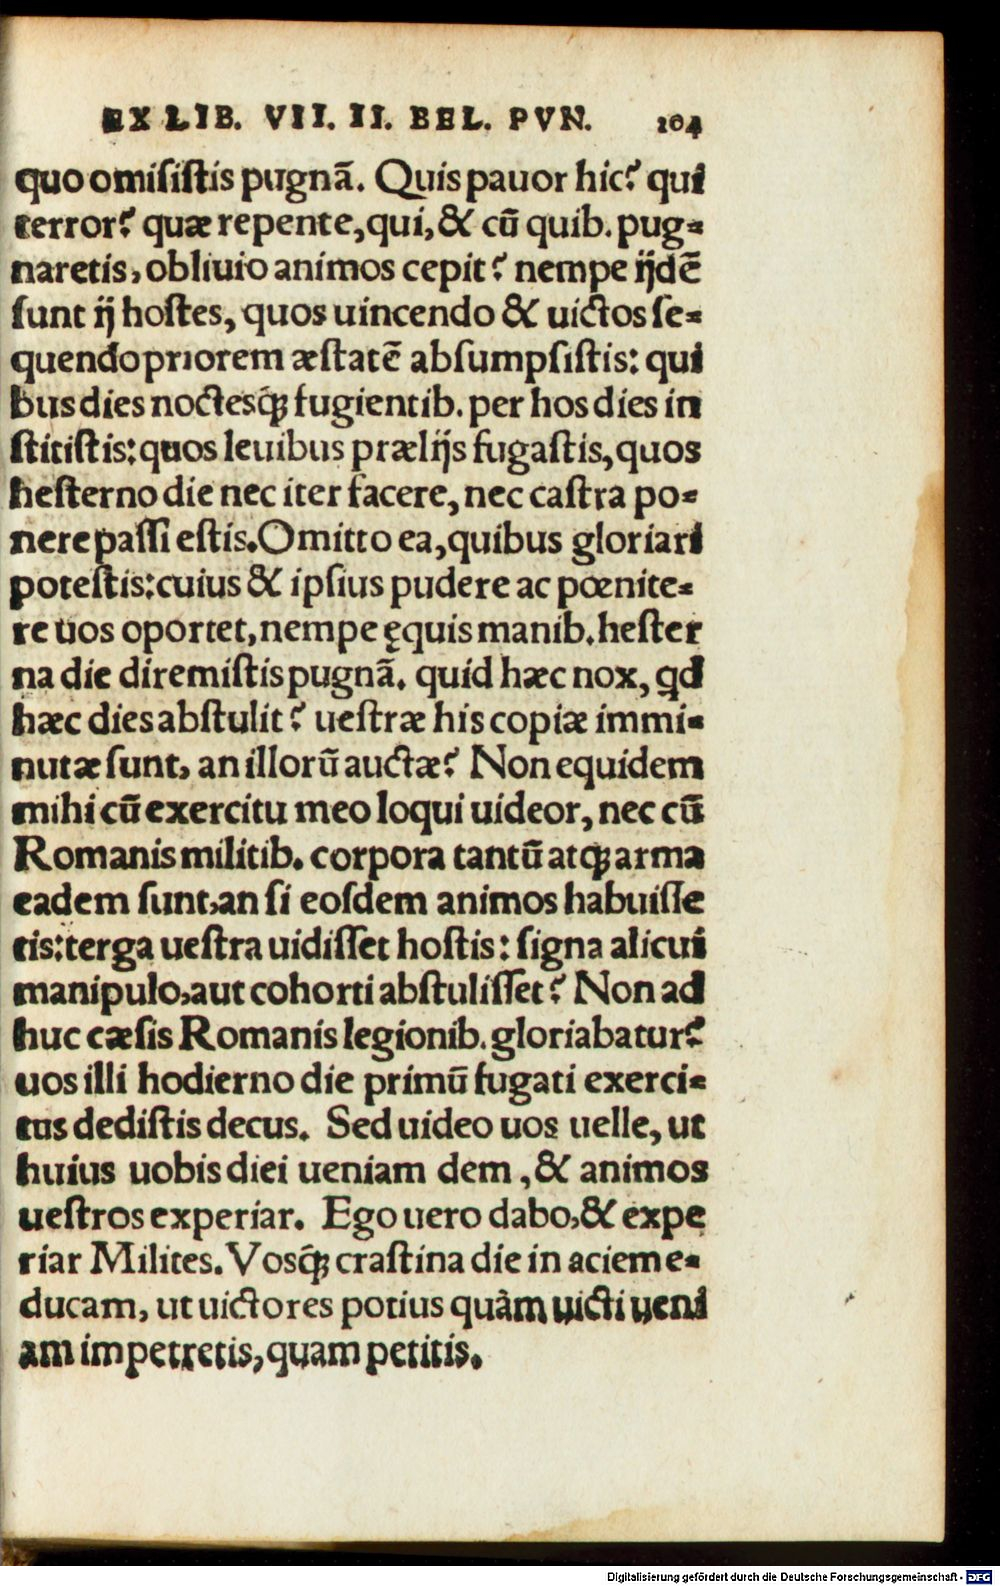 EX LIB. VII. II. BEL. PVN. 104
quo omisistis pugnã. Quis pauor hic? qui
terror? quæ repente, qui, & cũ quib. pug=
naretis, obliuio animos cepit? nempe ijdẽ
sunt ij hostes, quos uincendo & uictos se=
quendo priorem æstatẽ absumpsistis: qui
bus dies noctesq̃; fugientib. per hos dies in
stitistis: quos leuibus prælijs fugastis, quos
hesterno die nec iter facere, nec castra po=
nere passi estis. Omitto ea, quibus gloriari
potestis: cuius & ipsius pudere ac pœnite=
re uos oportet, nempe ęquis manib. hester
na die diremistis pugnã. quid hæc nox, qd
hæc dies abstulit? uestræ his copiæ immi=
nutæ sunt, an illorũ auctæ? Non equidem
mihi cũ exercitu meo loqui uideor, nec cũ
Romanis militib. corpora tantũ atq; arma
eadem sunt, an si eosdem animos habuisse
tis: terga uestra uidisset hostis: signa alicui
manipulo, aut cohorti abstulisset? Non ad
huc cæsis Romanis legionib. gloriabatur?
uos illi hodierno die primũ fugati exerci=
tus dedistis decus. Sed uideo uos uelle, ut
huius uobis diei ueniam dem, & animos
uestros experiar. Ego uero dabo, & expe
riar Milites. Vosq̃; crastina die in aciem e=
ducam, ut uictores potius quàm uicti ueni
am impetretis, quam petitis.
Digitalisierung gefördert durch die Deutsche Forschungsgemeinschaft - DFG